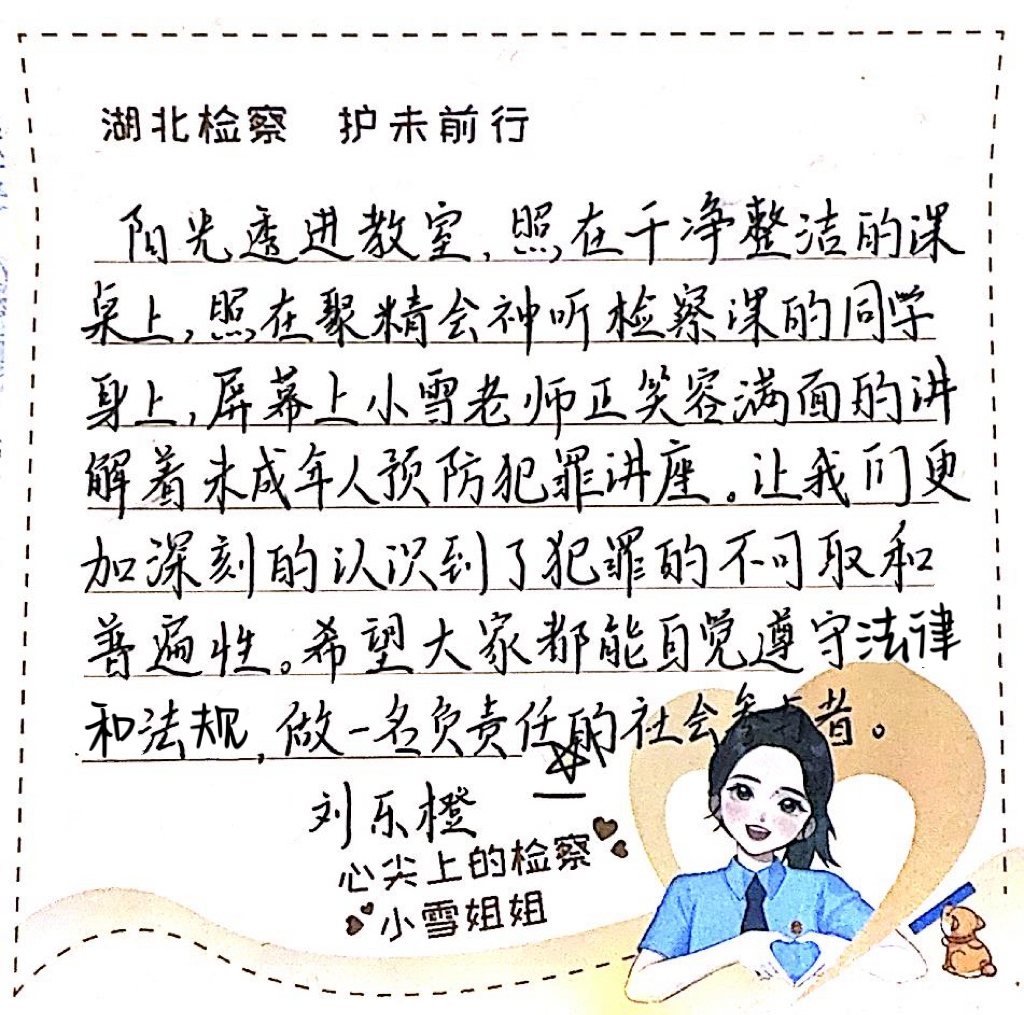 湖北检察 护未前行
阳光透进教室,照在干净整洁的课
桌上,照在聚精会神听检察课的同学
身上,屏幕上小雪老师正笑容满面的讲
解着未成年人预防犯罪讲座。让我们更
加深刻的认识到了犯罪的不可取和
普遍性。希望大家都能自觉遵守法律
和法规,做一名负责任的社会参与者。
刘乐橙
心尖上的检察
小雪姐姐